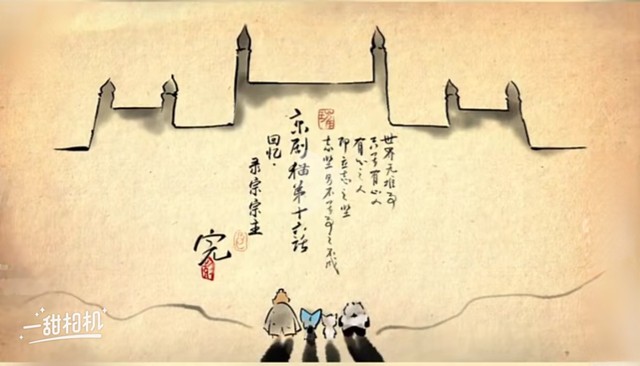 世界无难事
有心人
有心之人
即立志之坚
志坚不事之不成
京剧猫第十六话
回忆·
录宗宗主
完
一甜相机